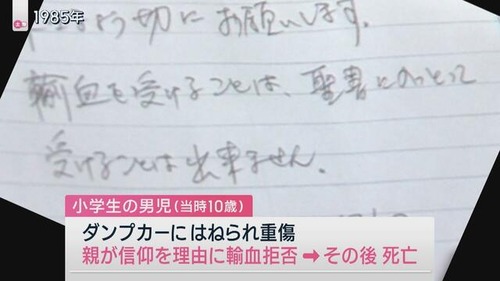 1985年
う切にお願いします。
輸血を受けることは、聖書にのっとって
受けることは出来ません。
小学生の男児(当時10歳)
ダンプカーにはねられ重傷
親が信仰を理由に輸血拒否➡その後 死亡